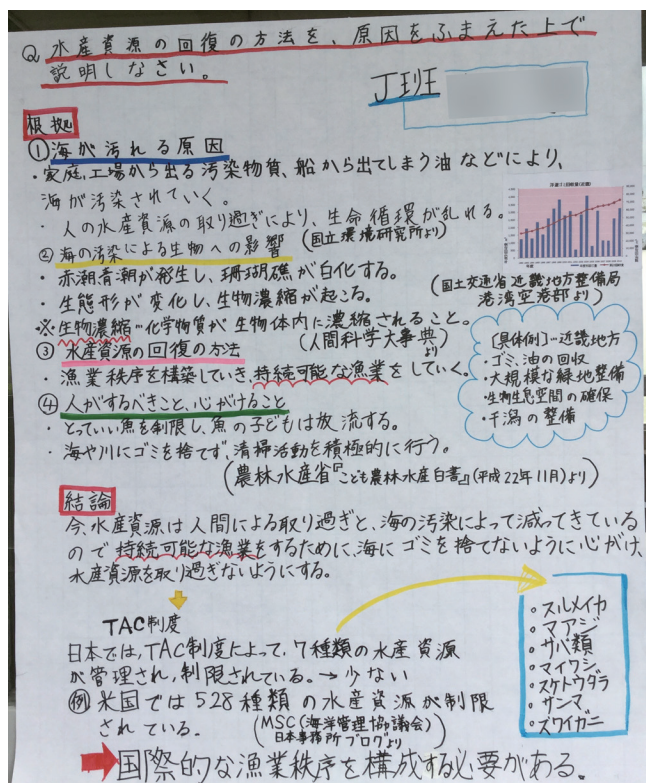 Q 水産資源の回復の方法を、原因をふまえた上で
説明しなさい。
J班
根拠
①海が汚れる原因
・家庭、工場から出る汚染物質、船から出てしまう油などにより、
海が汚染されていく。
・人の水産資源の取り過ぎにより、生命循環が乱れる。
(国立環境研究所より)
②海の汚染による生物への影響
・赤潮青潮が発生し、珊瑚礁が白化する。
・生態形が変化し、生物濃縮が起こる。
(国土交通省近畿地方整備局
港湾空港部より)
※生物濃縮…化学物質が生物体内に濃縮されること。
(人間科学大事典より)
③水産資源の回復の方法
・漁業秩序を構築していき、持続可能な漁業をしていく。
[具体例]…近畿地方
・ゴミ、油の回収
・大規模な緑地整備
・生物生息空間の確保
・干潟の整備
④人がするべきこと、心がけること
・とっていい魚を制限し、魚の子どもは放流する。
・海や川にゴミを捨てず、清掃活動を積極的に行う。
(農林水産省『こども農林水産白書』(平成22年11月)より)
結論
今、水産資源は人間による取り過ぎと、海の汚染によって減ってきている
ので持続可能な漁業をするために、海にゴミを捨てないように心がけ、
水産資源を取り過ぎないようにする。
TAC制度
日本では、TAC制度によって、7種類の水産資源
が管理され、制限されている。→少ない
例 米国では528種類の水産資源が制限
されている。
(MSC(海洋管理協議会)
日本事務所ブログより)
・スルメイカ
・マアジ
・サバ類
・マイワシ
・スケトウダラ
・サンマ
・ズワイガニ
国際的な漁業秩序を構成する必要がある。